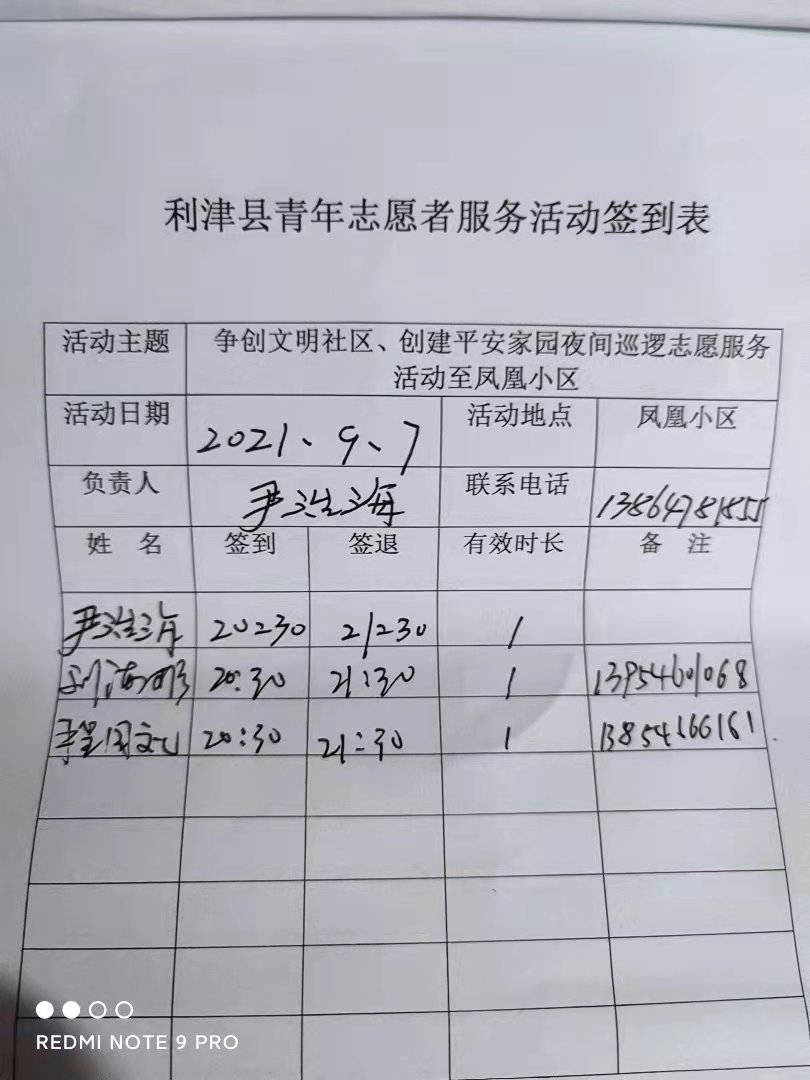 利津县青年志愿者服务活动签到表
活动主题 争创文明社区、创建平安家园夜间巡逻志愿服务
活动至凤凰小区
活动日期 2021、9、7 活动地点 凤凰小区
负责人 尹浩海 联系电话 13864781855
姓 名 签到 签退 有效时长 备 注
尹浩海 20:30 21:30 1
20:30 21:30 1 13954601068
20:30 21:30 1 13854666161
REDMI NOTE 9 PRO